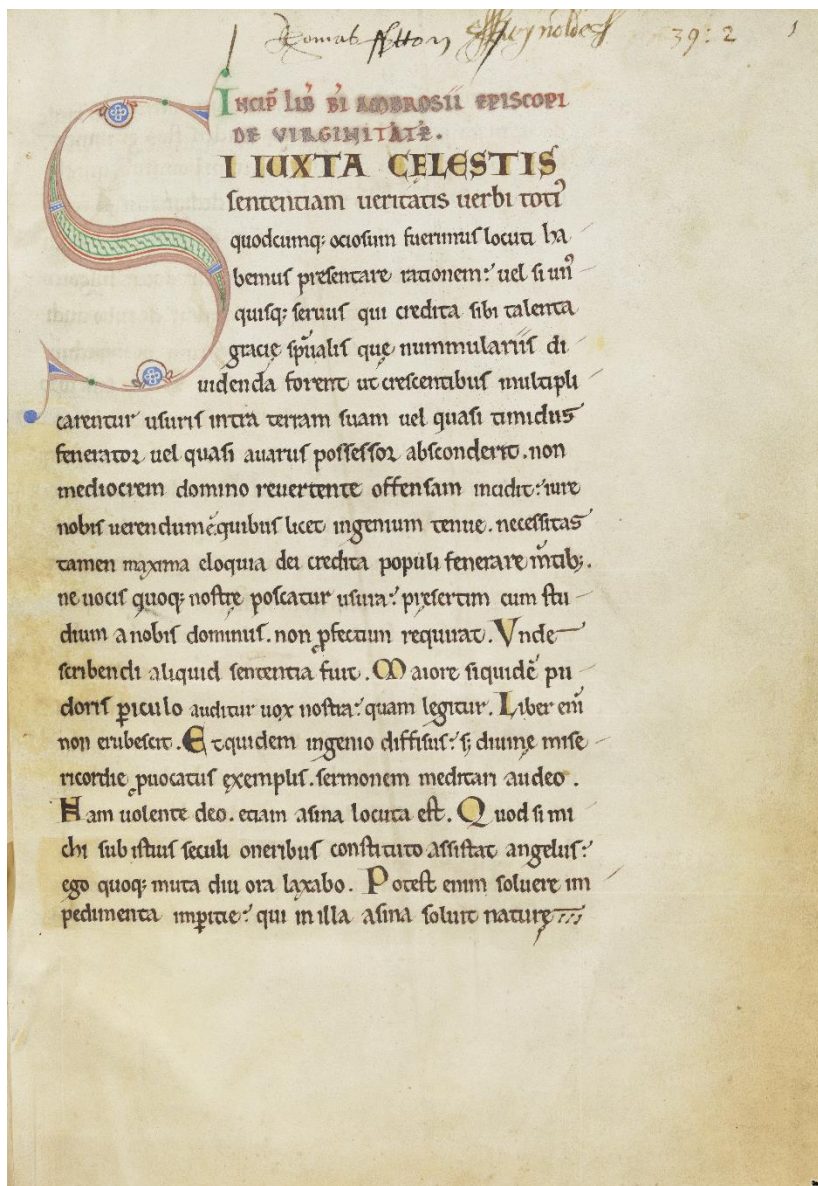 39: 2
1
Incip̄ lib̄ b̄i ambrosii episcopi
de virginitate.
SI IUXTA CELESTIS
sententiam ueritatis uerbi toti᷒
quodcumq; ociosum fuerimus locuti ha
bemus presentare rationem: uel si un᷒
quisq; seruus qui credita sibi talenta
gracię sp̄ualis que nummulariis di
uidenda forent ut crescentibus multipli
carentur usuris intra terram suam uel quasi timidus
fenerator uel quasi auarus possessor absconderit. non
mediocrem domino reuertente offensam incidit: iure
nobis uerendum ē. quibus licet ingenium tenue. necessitas
tamen maxima eloquia dei credita populi fenerare m̄tib;.
ne uocis quoq; nostrę poscatur usura: presertim cum stu
dium a nobis dominus. non ꝓfectum requirat. Vnde
scribendi aliquid sententia fuit. Maiore siquidē pu
doris ꝑiculo auditur uox nostra: quam legitur. Liber eni᷒
non erubescit. Et quidem ingenio diffisus: s; diuine mise
ricordie ꝓuocatus exemplis. sermonem meditari audeo.
Nam uolente deo. etiam asina locuta est. Quod si mi
chi sub istius seculi oneribus constituto assistat angelus:
ego quoq; muta diu ora laxabo. Potest enim soluere im
pedimenta imꝑitie: qui in illa asina soluit naturę